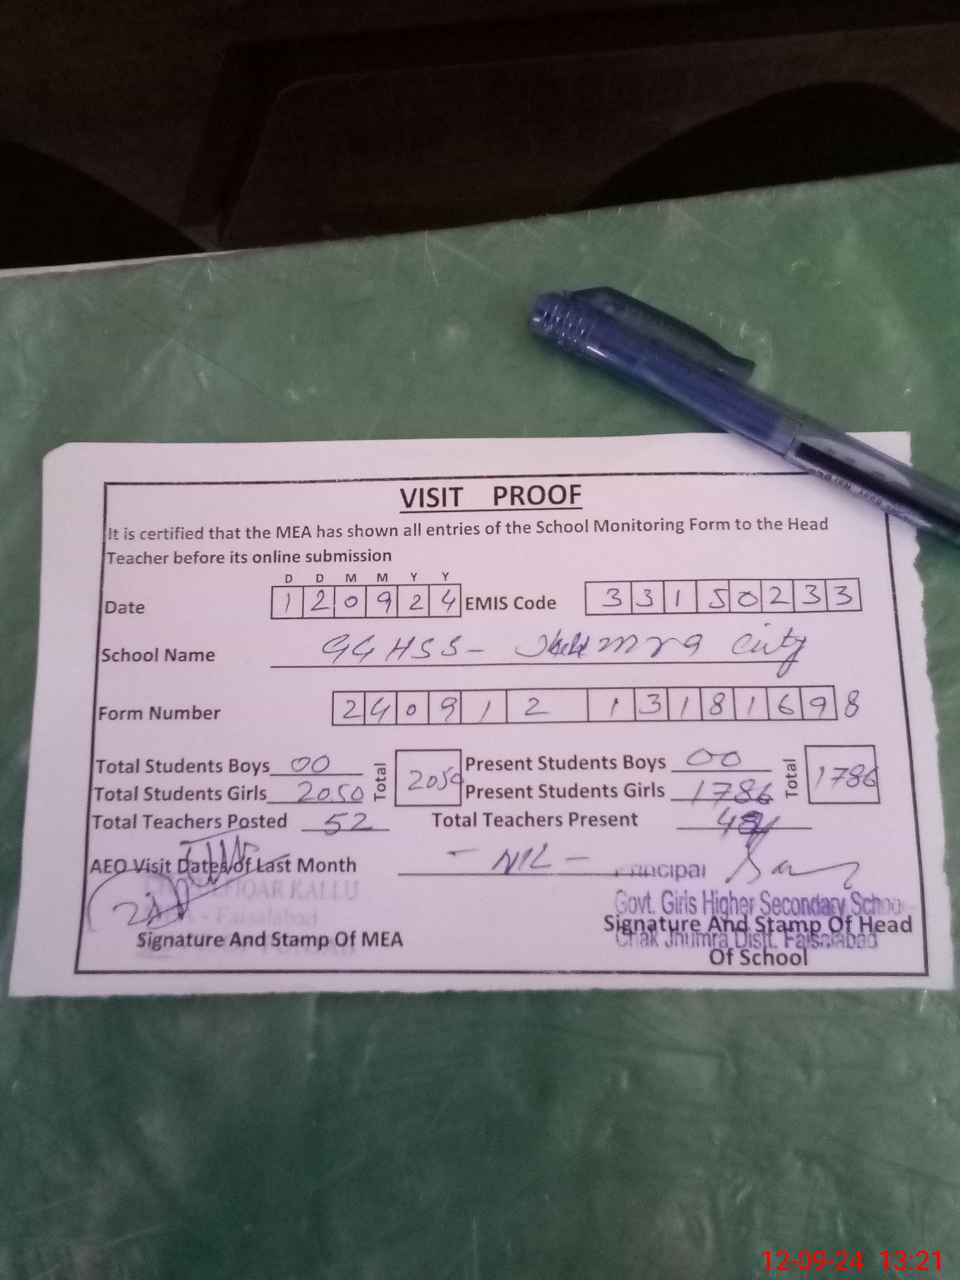 VISIT PROOF
It is certified that the MEA has shown all entries of the School Monitoring Form to the Head
Teacher before its online submission
D D M M Y Y
Date 1 2 0 9 2 4 EMIS Code 3 3 1 5 0 2 3 3
School Name GGHSS- city
Form Number 2 4 0 9 1 2 1 3 1 8 1 6 9 8
Total Students Boys 00 Total 2050 Present Students Boys 00 Total 1786
Total Students Girls 2050 Present Students Girls 1786
Total Teachers Posted 52 Total Teachers Present
AEO Visit Dates of Last Month - NIL -
Principal
KALLU
Govt. Girls Higher Secondary School
- Faisalabad
Signature And Stamp Of MEA Signature And Stamp Of Head
Chak Jhumra Distt. Faisalabad
Of School
12-09-24 13:21